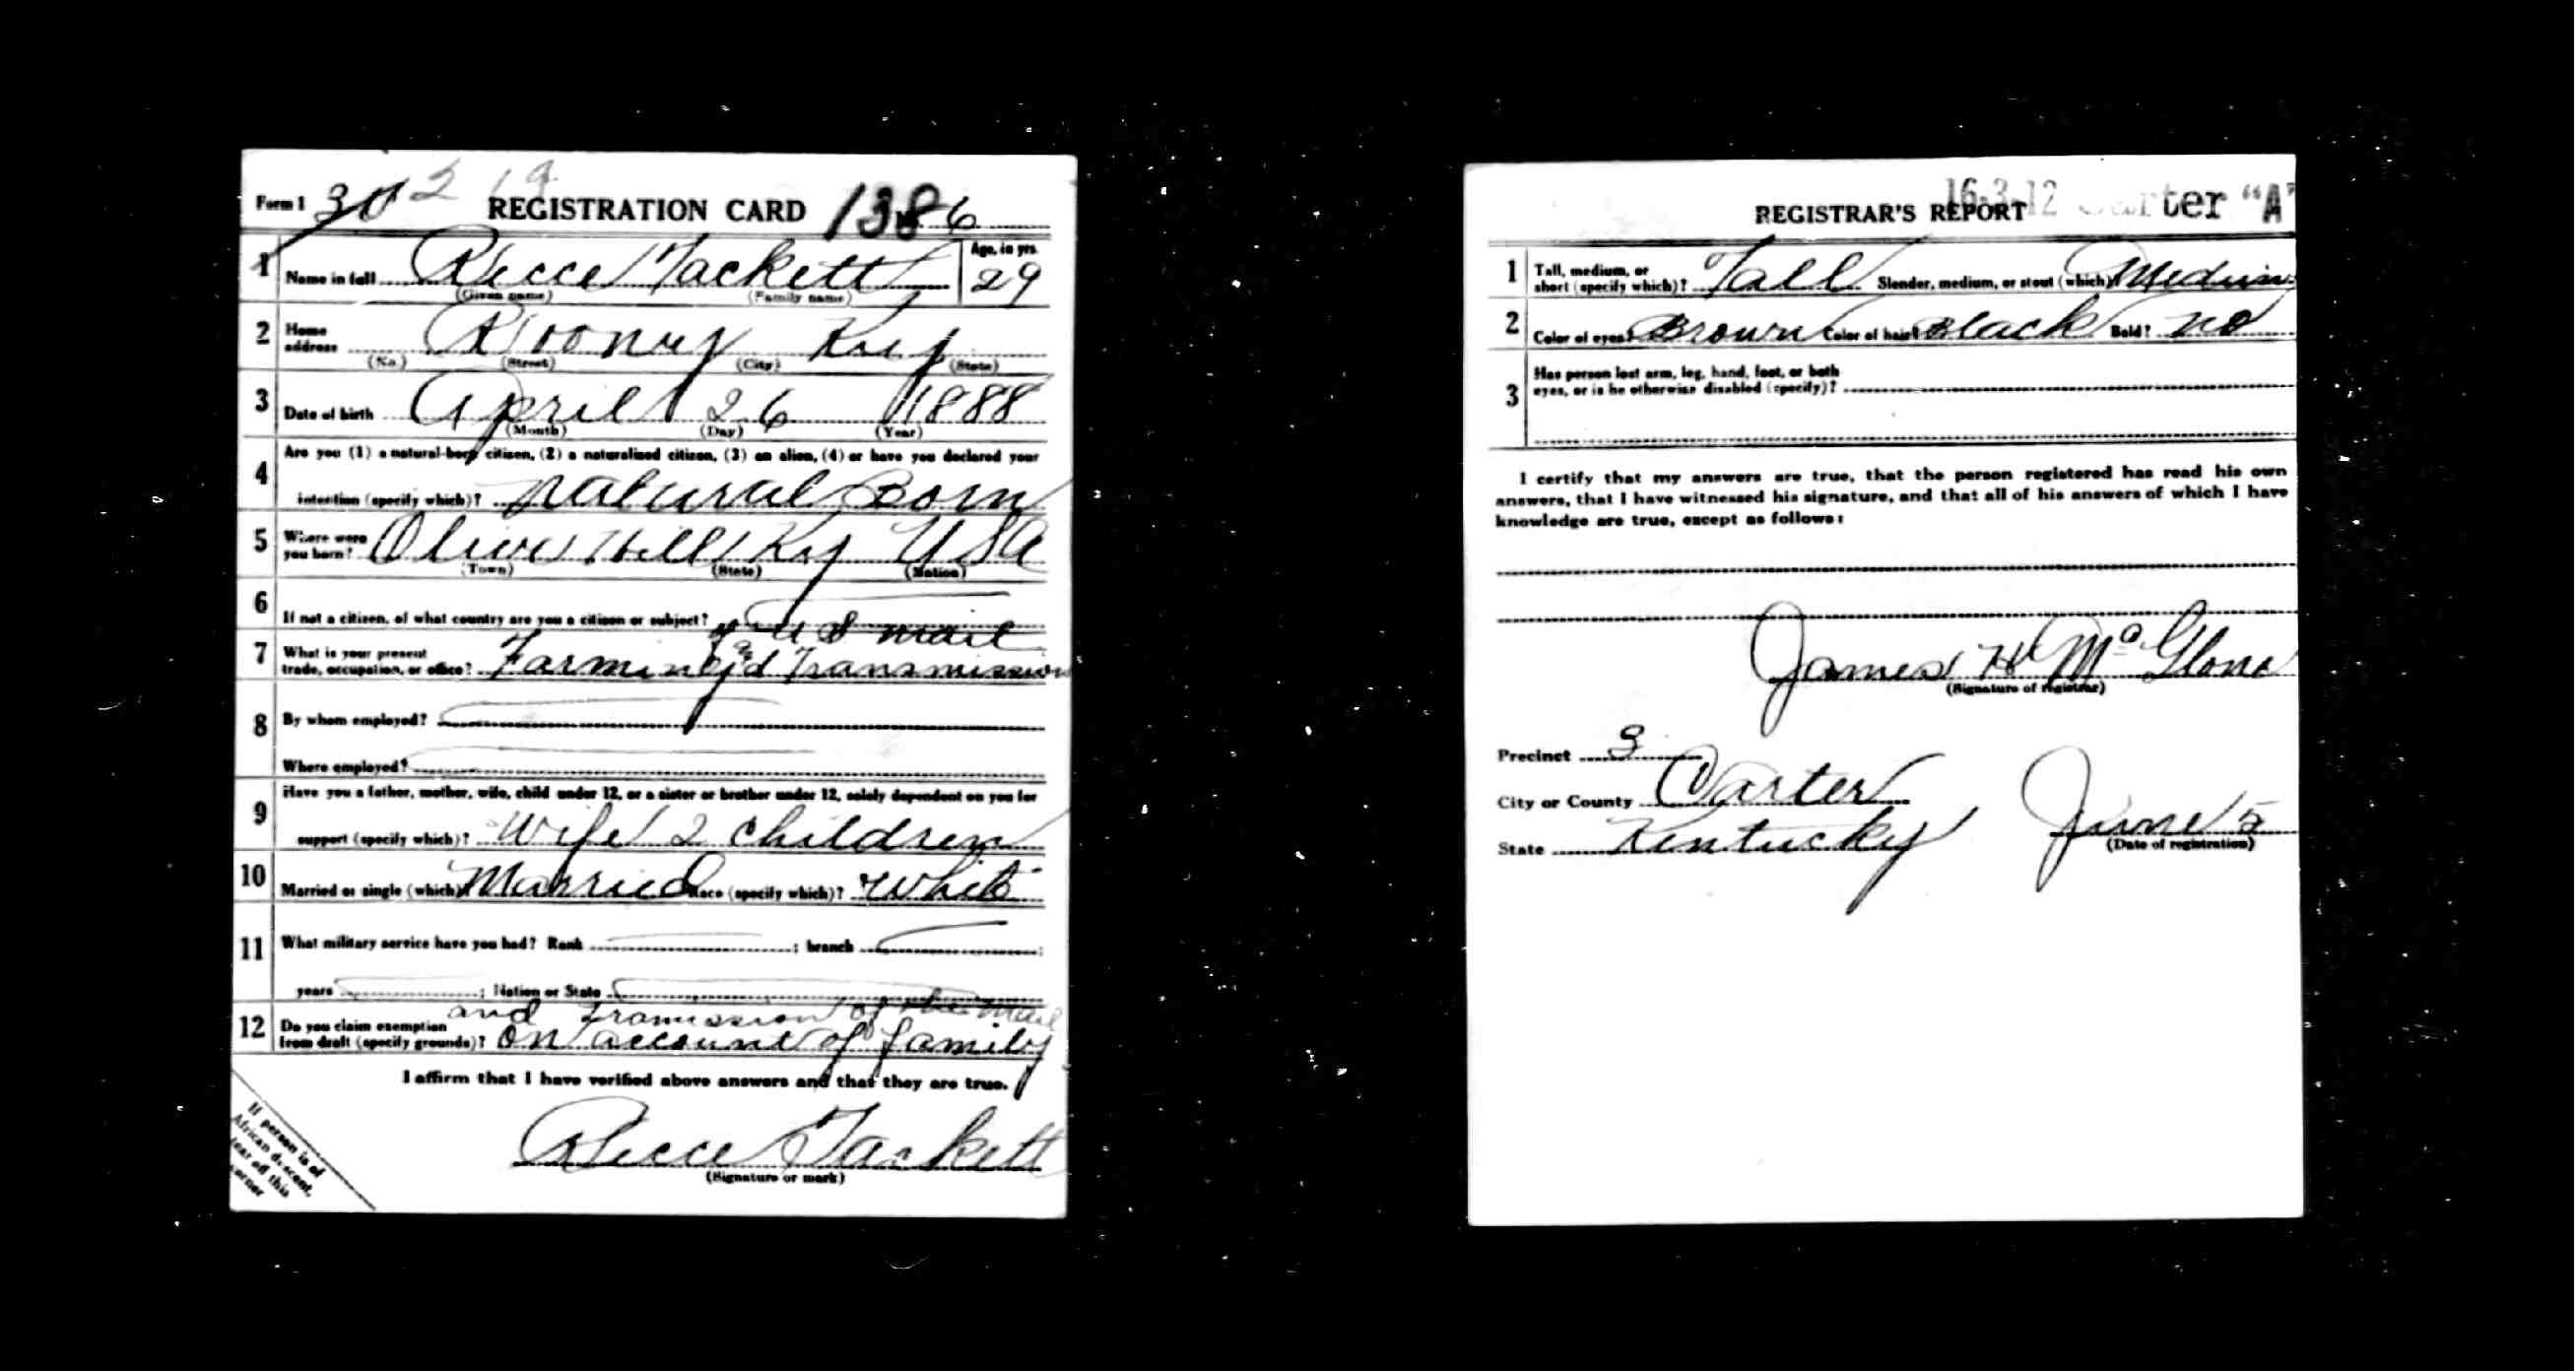 Form 1 302 19 REGISTRATION CARD 1386
1 Name in full Reece Tackett Age, in yrs. 29
(Given name) (Family name)
2 Home address Rooney Ky
(No.) (Street) (City) (State)
3 Date of birth April 26 1888
(Month) (Day) (Year)
Are you (1) a natural-born citizen, (2) a naturalized citizen, (3) an alien, (4) or have you declared your
4 intention (specify which)? natural Born
5 Where were you born? Olive Hill Ky USA
(Town) (State) (Nation)
6 If not a citizen, of what country are you a citizen or subject?
of U S mail
7 What is your present trade, occupation, or office? Farming and Transmission
8 By whom employed?
Where employed?
Have you a father, mother, wife, child under 12, or a sister or brother under 12, solely dependent on you for
9 support (specify which)? Wife 2 children
10 Married or single (which)? Married Race (specify which)? White
11 What military service have you had? Rank ; branch ;
years ; Nation or State
and Tramission of the mail
12 Do you claim exemption from draft (specify grounds)? on account of family
I affirm that I have verified above answers and that they are true.
Reece Tackett
(Signature or mark)
If person is of
African descent,
tear off this
corner
16-3-12 Carter "A"
REGISTRAR'S REPORT
1 Tall, medium, or short (specify which)? Tall Slender, medium, or stout (which)? Medium
2 Color of eyes? Brown Color of hair? Black Bald? no
3 Has person lost arm, leg, hand, foot, or both
eyes, or is he otherwise disabled (specify)?
I certify that my answers are true, that the person registered has read his own
answers, that I have witnessed his signature, and that all of his answers of which I have
knowledge are true, except as follows:
James H McGlone
(Signature of registrar)
Precinct 3
City or County Carter
State Kentucky June 5
(Date of registration)